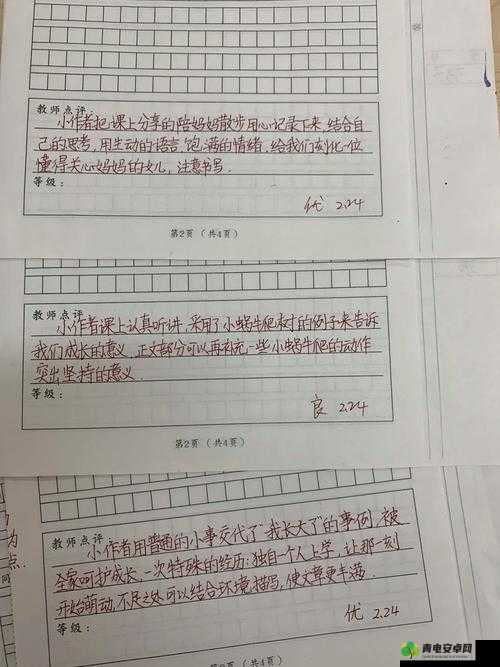 教师点评:
小作者把课上分享的陪妈妈散步用心记录下来,结合自
己的思考,用生动的语言,饱满的情绪,给我们刻化一位
懂得关心妈妈的女儿,注意书写.
等级:
优 2.24
第2页(共4页)
教师点评:
小作者课上认真听讲,采用了小蜗牛爬树的例子来告诉
我们成长的意义,正文部分可以再补充一些小蜗牛爬的动作
突出坚持的意义.
等级:
良 2.24
第2页(共4页)
教师点评:
小作者用普通的小事交代了“我长大了”的事例,被
全家呵护成长,一次特殊的经历:独自一个人上学,让那一刻
开始萌动,不足之处可以结合环境描写,使文章更丰满.
优 2.24
为
点.
青电安卓网